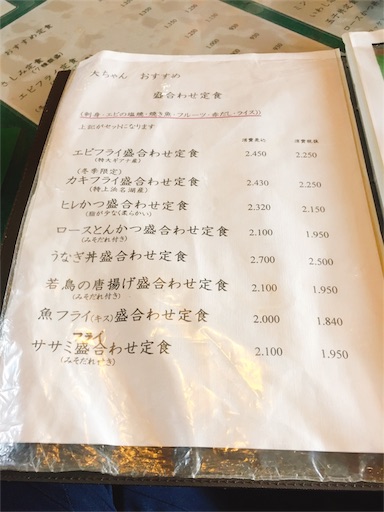 さしみ定食
エビフライ定食
大ちゃん おすすめ
盛合わせ定食
(刺身・エビの塩焼・焼き魚・フルーツ・赤だし・ライス)
上記がセットになります
消費税込 消費税抜
エビフライ盛合わせ定食 2.450 2.250
(特大ギアナ産)
(冬季限定)
カキフライ盛合わせ定食 2.430 2.250
(特上浜名湖産)
ヒレかつ盛合わせ定食 2.320 2.150
(脂が少なく柔らかい)
ロースとんかつ盛合わせ定食 2.100 1.950
(みそだれ付き)
うなぎ丼盛合わせ定食 2.700 2.500
若鳥の唐揚げ盛合わせ定食 2.100 1.950
(みそだれ付き)
魚フライ(キス)盛合わせ定食 2.000 1.840
フライ
ササミ盛合わせ定食 2.100 1.950
(みそだれ付き)